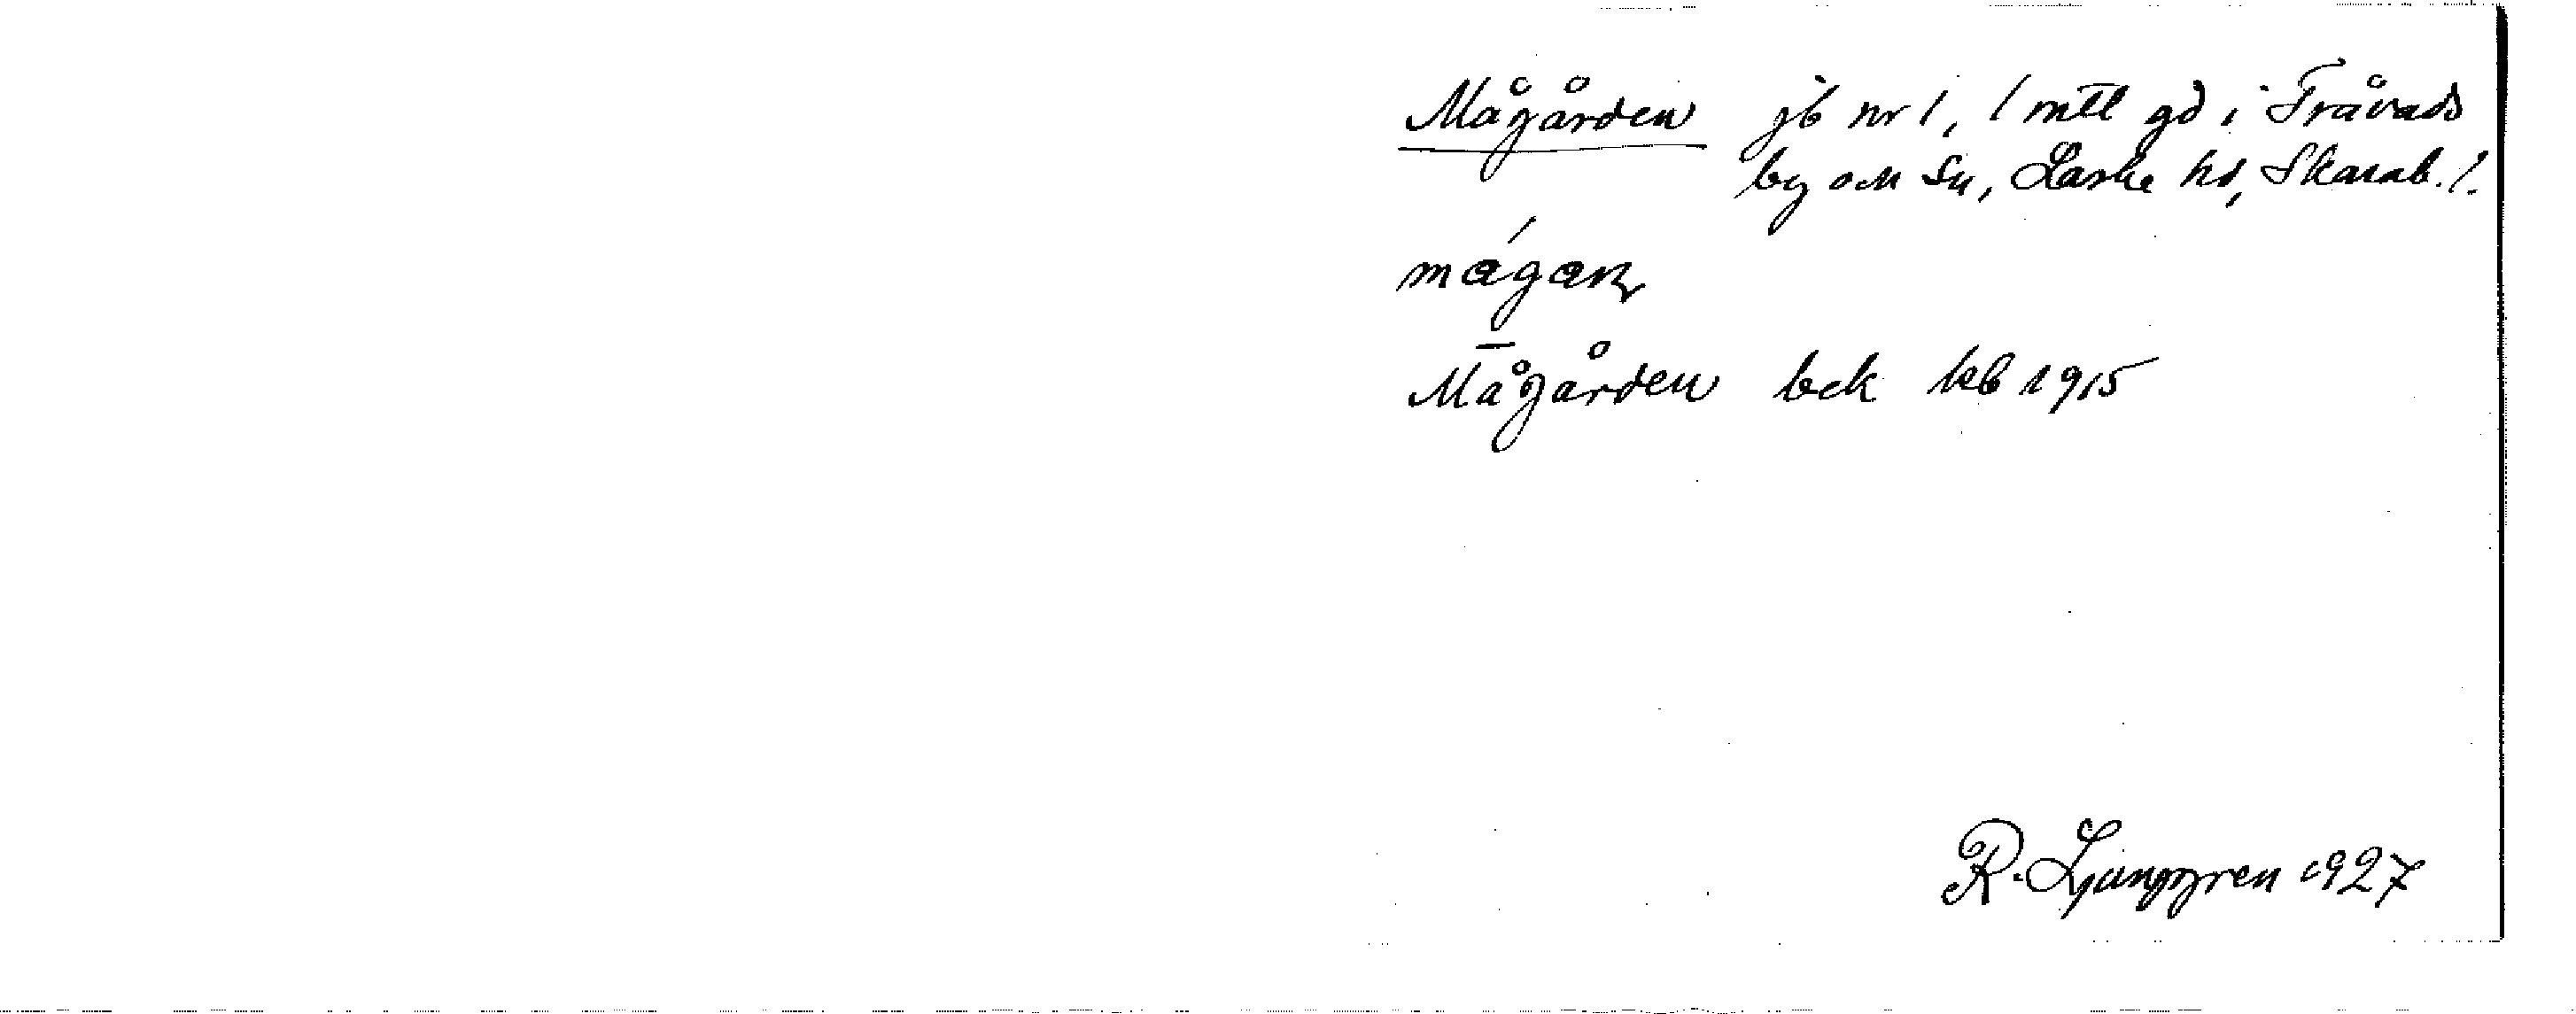 Mågården jb nr 1, 1 mtl gd i Tråvads
by och sn, Laske hd, Skarab. l.
mågaɳ
Mågården bck kb 1915
R. Ljunggren 1927